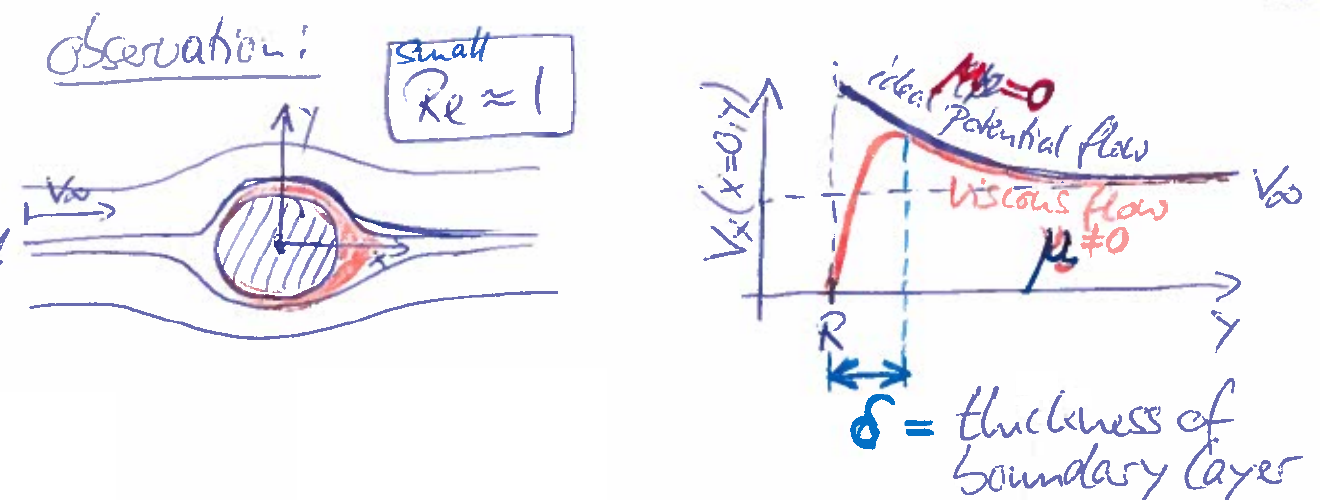 observation:
small
Re ≈ 1
Y
V∞
x
Vx(x=0,y)
μ=0
ideal
Potential flow
V∞
Viscous flow
μ≠0
R
Y
δ = thickness of
boundary layer